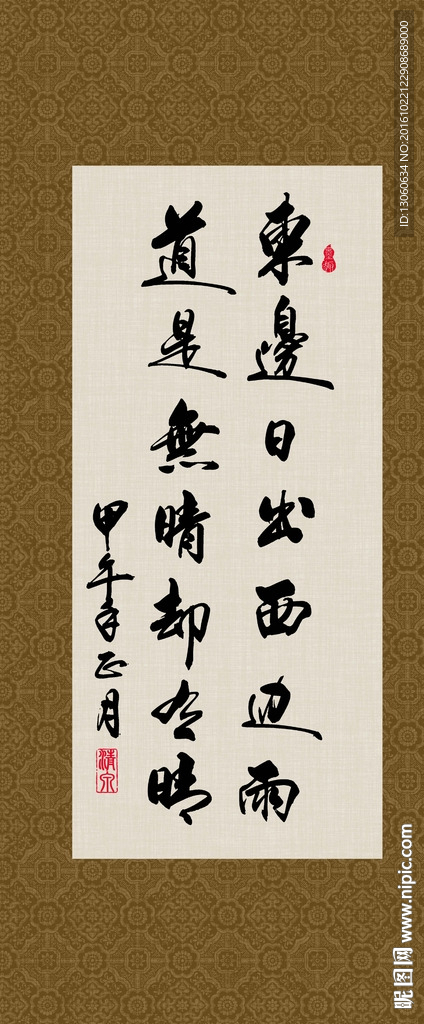 東邊日出西边雨
道是無晴却有晴
甲午年正月
清泉
ID:13060634 NO:20161022122908689000
昵图网 www.nipic.com